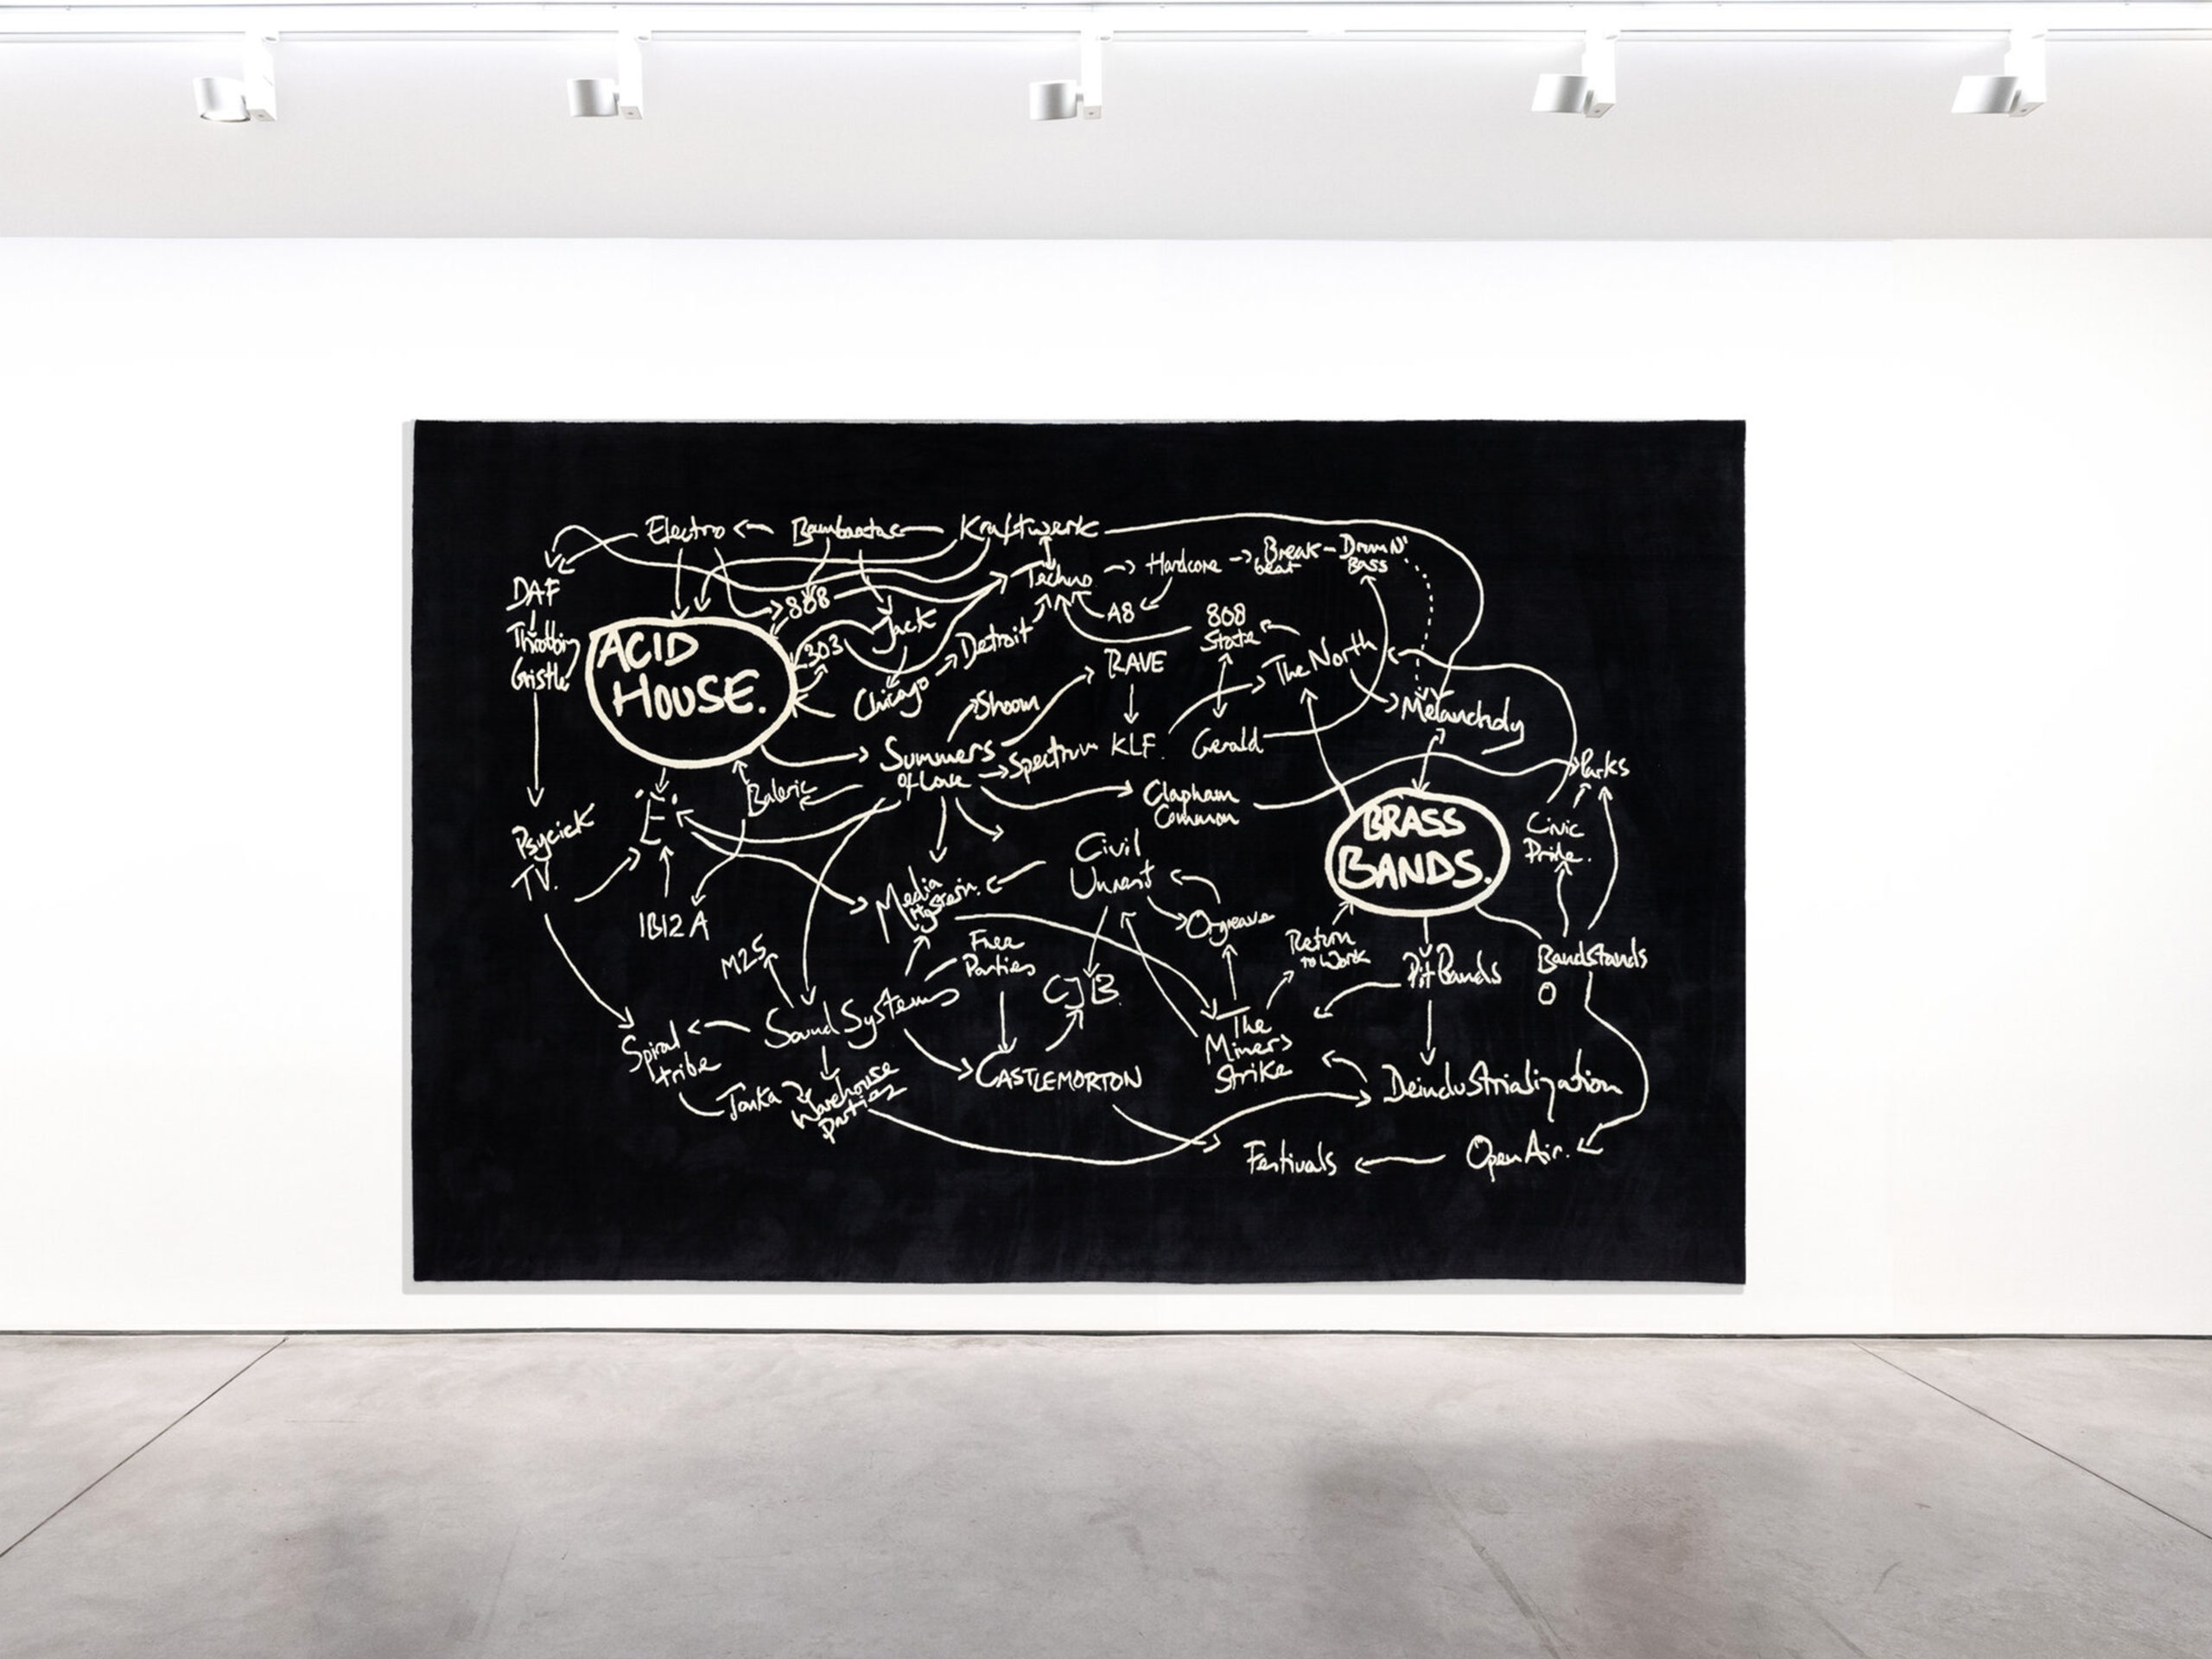 Electro
Bambaataa
Kraftwerk
DAF
Throbbing
Gristle
ACID
HOUSE.
808
303
Jack
Chicago
Detroit
Techno
Hardcore
Break
beat
Drum N'
Bass
A8
808
State
The North
RAVE
Shoom
Summers
of Love
Spectrum
KLF.
Gerald
Melancholy
Parks
Clapham
Common
BRASS
BANDS.
Civic
Pride.
Baleric
'E'
Psycick
TV.
IBIZA
Media
Hysteria.
Civil
Unrest
Orgreave
Return
to Work
Pit Bands
BandStands
M25
Free
Parties
CJB.
Sound Systems
Spiral
tribe
Tonka
Warehouse
Parties
CASTLEMORTON
The
Miners
Strike
Deindustrialization
Festivals
Open Air.